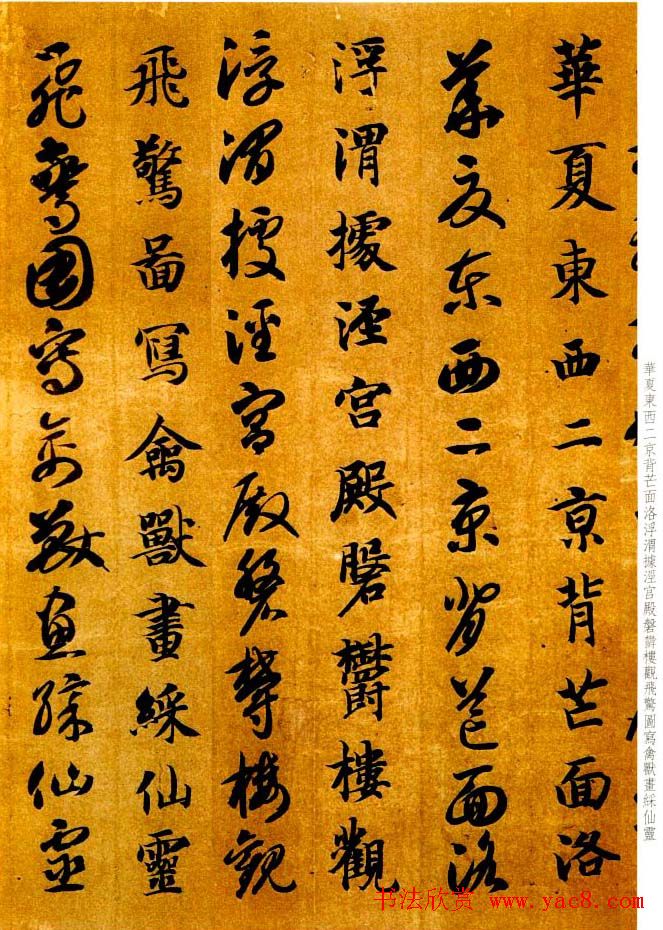 華夏東西二京背芒面洛
華夏东西二京背芒面洛
浮渭據涇宮殿磐欝樓觀
浮渭據涇宮殿磐欝樓觀
飛驚啚寫禽獸畫綵仙靈
飛驚圖寫禽獸畫綵仙靈
華夏東西二京背芒面洛浮渭據涇宮殿磐欝樓觀飛驚圖寫禽獸畫綵仙靈
书法欣赏 www.yac8.com